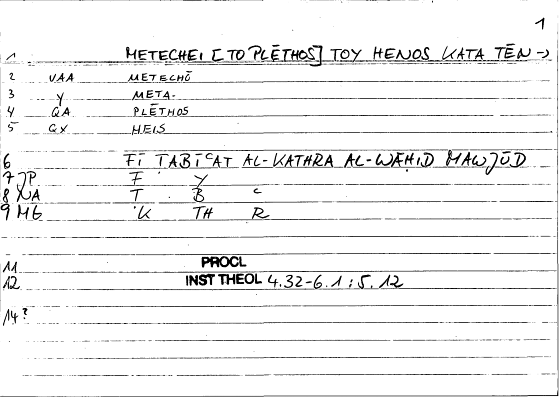 1
1 METECHEI [TO PLĒTHOS] TOY HENOS KATA TĒN →
2 VAA METECHŌ
3 Y META-
4 QA PLĒTHOS
5 QX HEIS
6 FĪ TABĪʿAT AL-KATHRA AL-WĀḤID MAWJŪD
7 JP F Y
8 NA T B ʿ
9 ME K TH R
11 PROCL
12 INST THEOL 4.32-6.1 : 5.12
14?